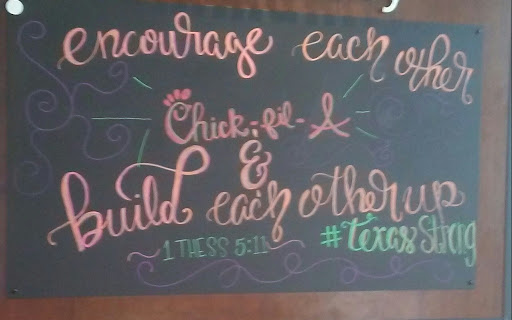 encourage each other
Chick-fil-A
&
build each other up
1 THESS 5:11
#texas Strong